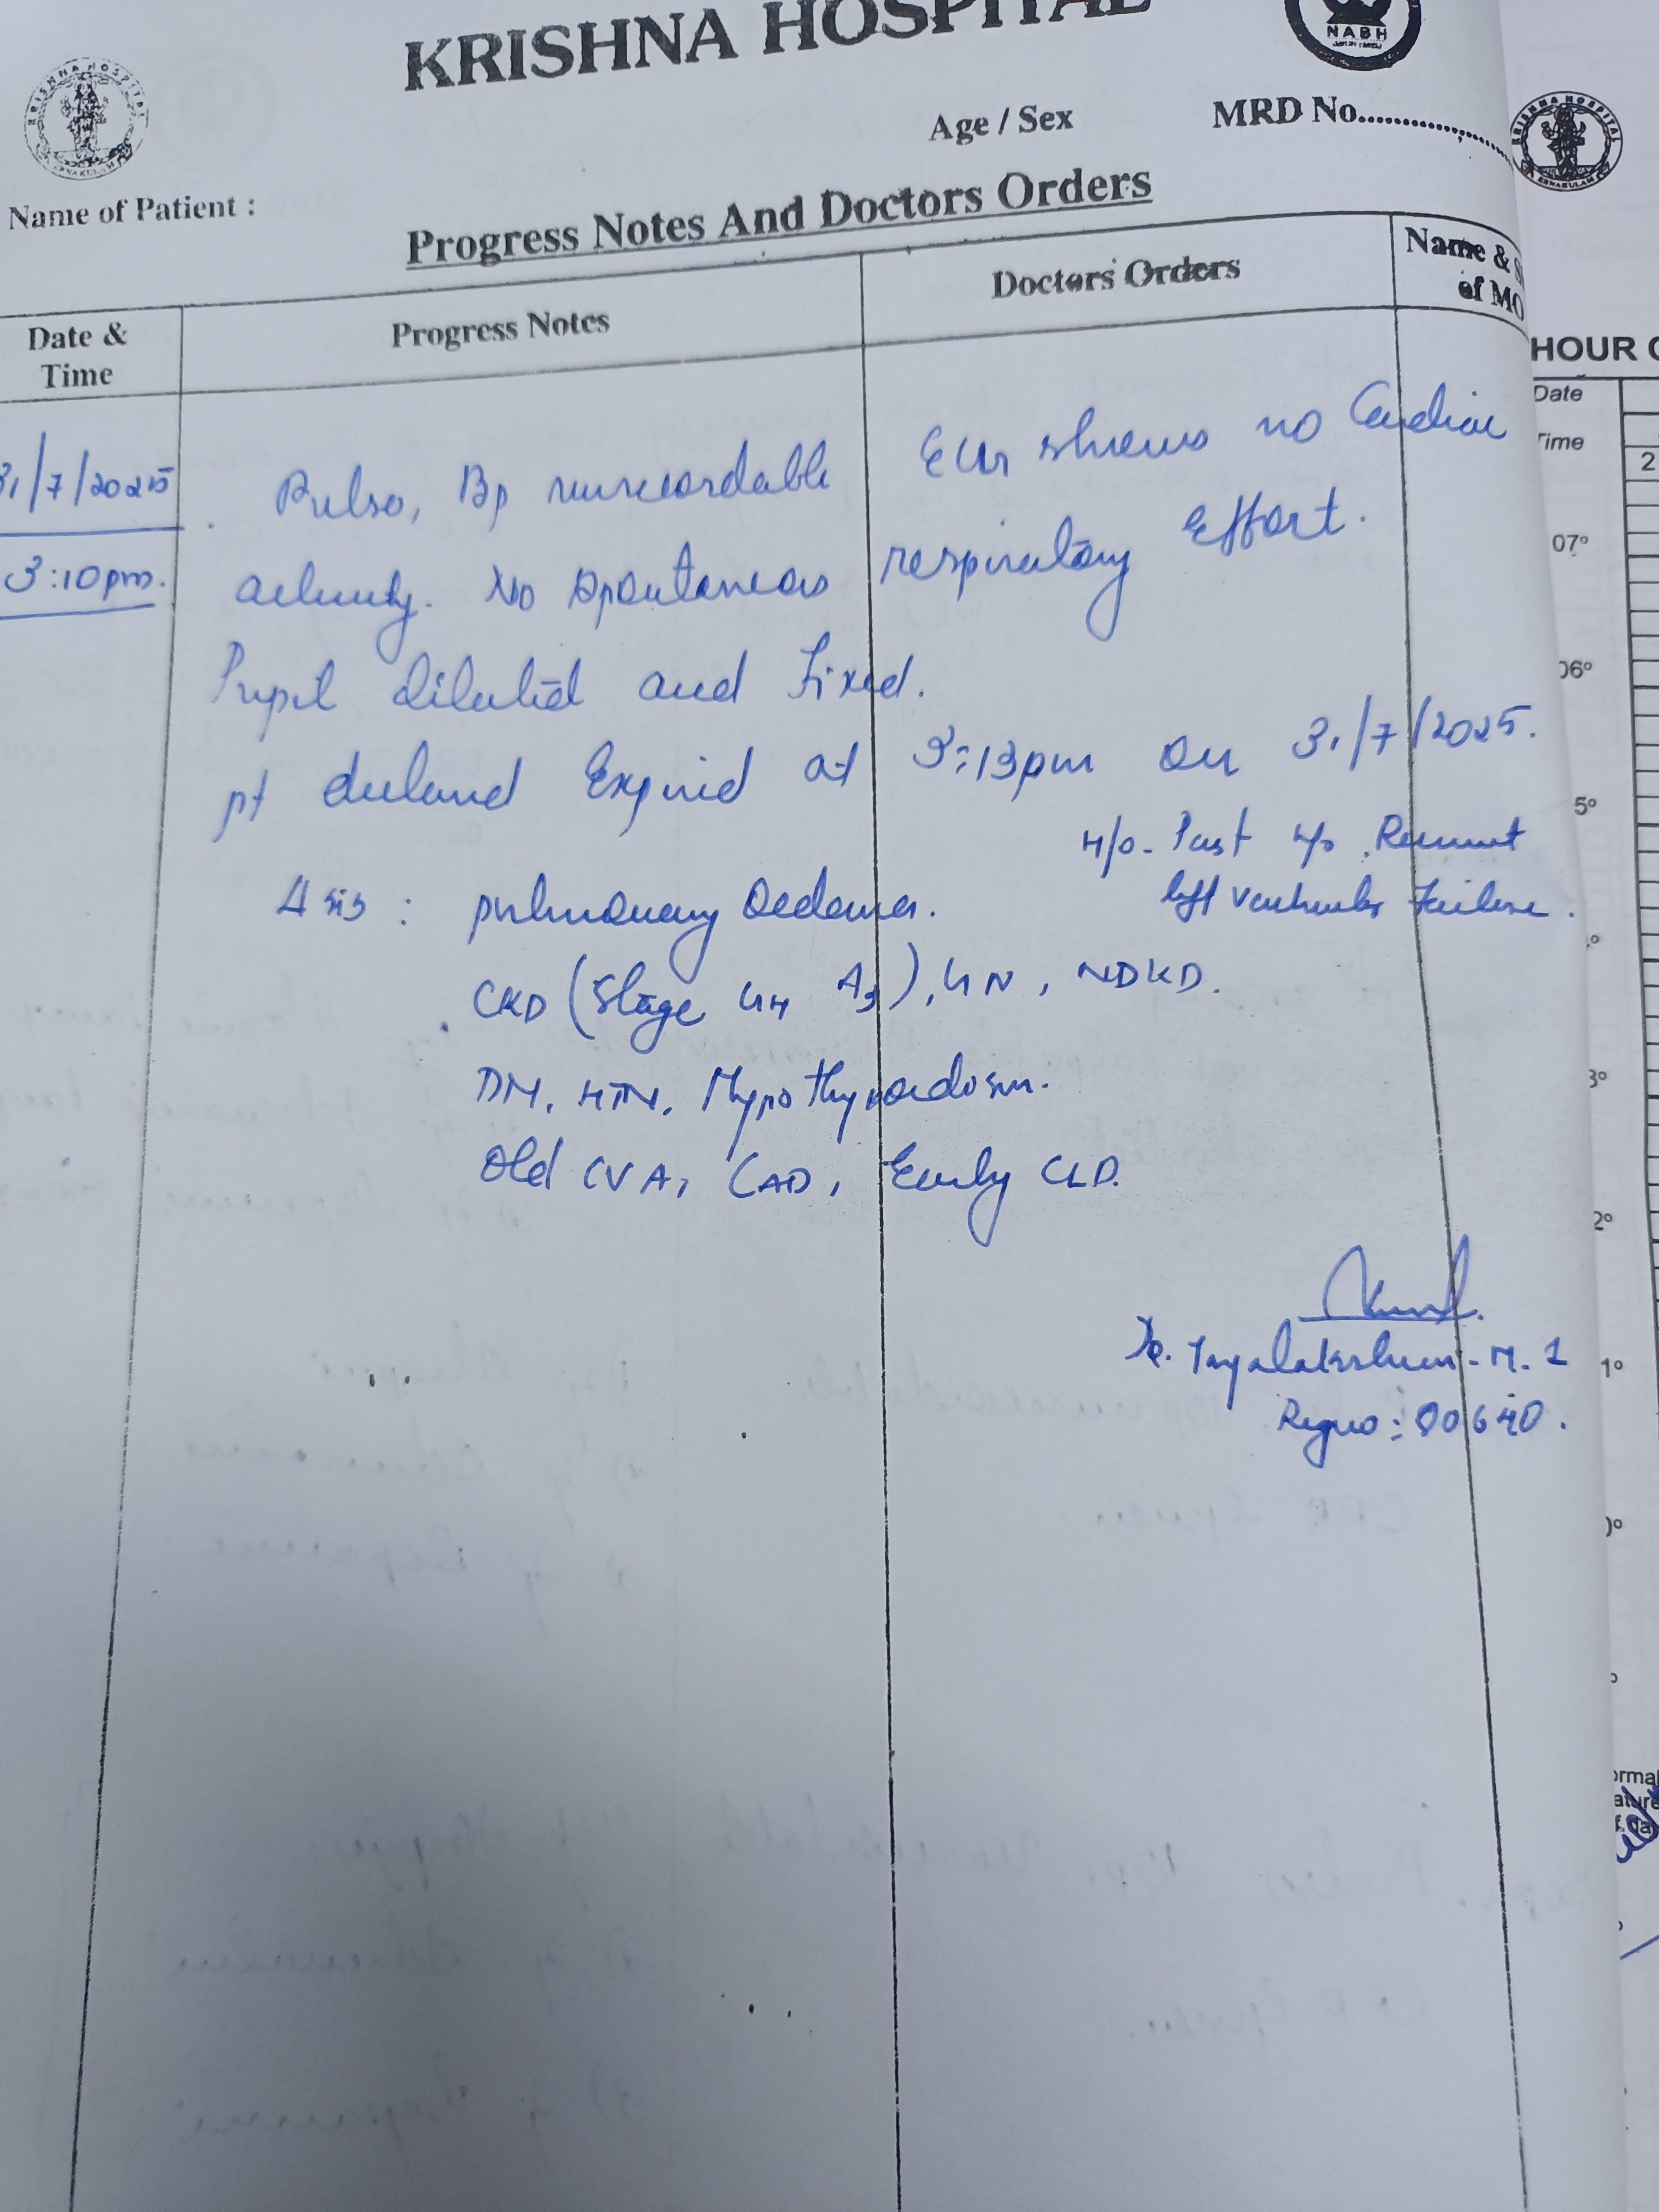 KRISHNA HOSPITAL
NABH
KRISHNA HOSPITAL
ERNAKULAM
Age / Sex
MRD No.
Name of Patient :
Progress Notes And Doctors Orders
Date & Time
Progress Notes
Doctors Orders
Name & S
of MO
31/7/2025
3:10pm.
Pulse, Bp unrecordable ECG shows no Cardiac
activity. No spontaneous respiratory Effort.
Pupil dilated and Fixed.
pt declared Expired at 3:13pm on 31/7/2025.
H/o - Past H/o Recurrent
left ventricular Failure.
Δsis : pulmonary Oedema.
CKD (Stage G4 A3), GN, NDKD.
DM, HTN, Hypothyroidism.
Old CVA, CAD, Early CLD.
Dr.
Reg no: 90640.
KRISHNA HOSPITAL
ERNAKULAM
HOUR
Date
Time
2
07°
06°
5°
3°
2°
1°